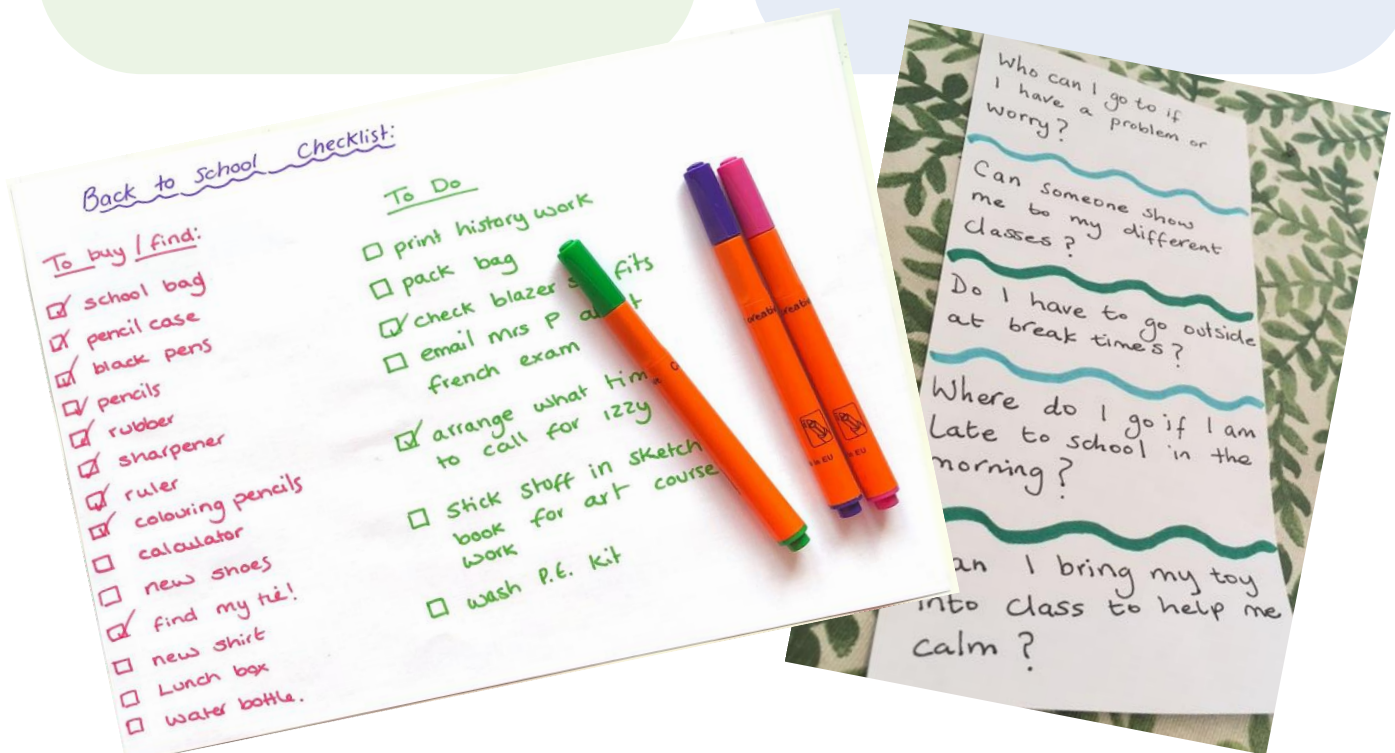 Back to school Checklist:
To buy / find:
school bag
pencil case
black pens
pencils
rubber
sharpener
ruler
colouring pencils
calculator
new shoes
find my tie!
new shirt
Lunch box
water bottle.
To Do
print history work
pack bag
check blazer fits
email mrs P
french exam
arrange what
to call for izzy
stick stuff in sketch
book for art course
work
wash P.E. kit
in EU
in EU
Who can I go to if
I have a problem or
worry?
Can someone show
me to my different
classes?
Do I have to go outside
at break times?
Where do I go if I am
late to school in the
morning?
I bring my toy
into class to help me
calm?